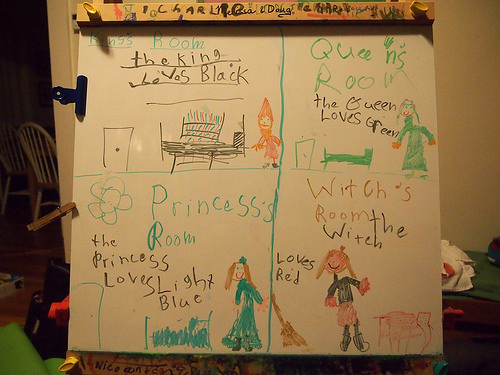 CHARL
King's Room
the King
Loves Black
Queen's
Room
the Queen
Loves Green
Princess's
Room
the
Princess
Loves Light
Blue
Witch's
Room the
Witch
Loves
Red